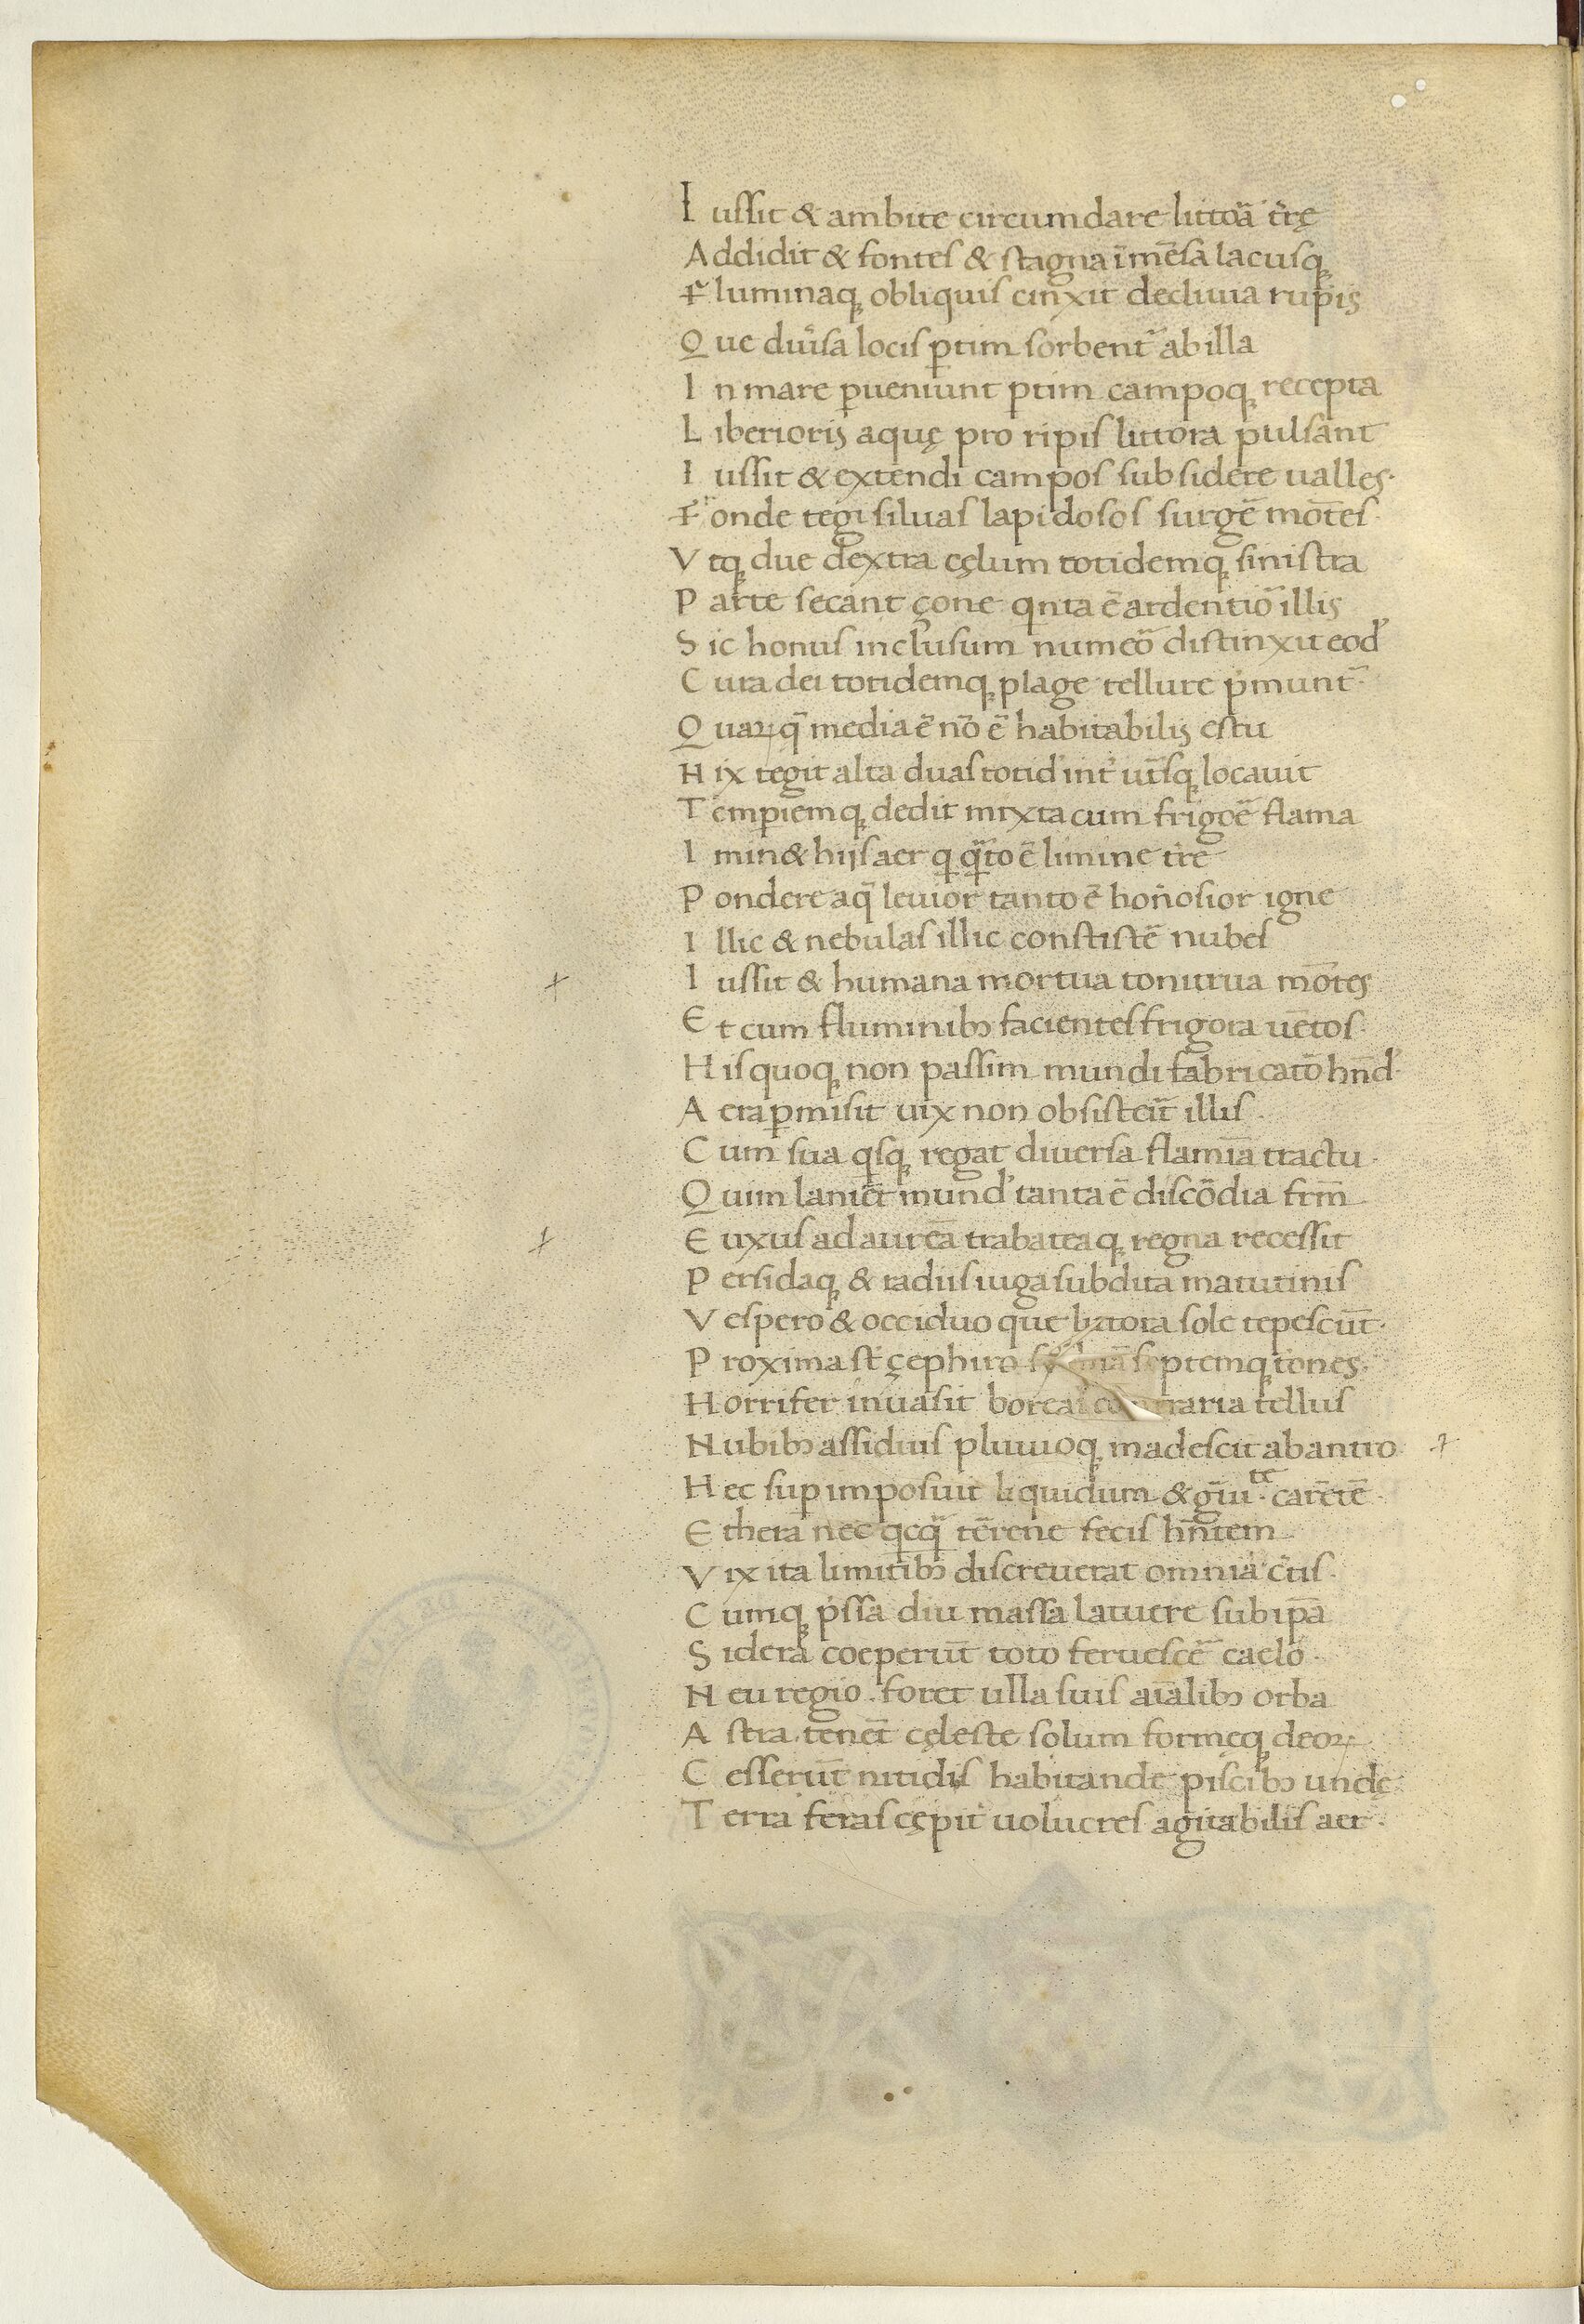 I ussit & ambite circumdare littoā tr̄ę
A ddidit & fontes & stagna īmēsa lacusq̨
F luminaq̨ obliquis cinxit decliuia rupis
Q ue diu̓sa locis ꝑtim sorbent᷑ ab illa
I n mare ꝑueniunt ꝑtim campoq̨ recepta
L iberioris aquę pro ripis littora pulsant
I ussit & extendi campos subsidere ualles·
F onde tegi siluas lapidosos surgē mōtes·
V tq̨ due dextra cęlum totidemq̨ sinistra
P arte secant çone qinta ē ardentio᷑ illis
S ic honus inclusum numeō distinxit eod̓
C ura dei totidemq̨ plage tellure p̓munt᷑·
Q uaꝝ q̄ media ē nō ē habitabilis estu
N ix tegit alta duas totid̓ int̓ utr̄sq̨ locauit
T emꝑiemq̨ dedit mixta cum frigoē flama
I min& hijs aer q qᷓto ē limine tr̄e
P ondere aq̄ leuior tanto ē hon̓osior igne
I llic & nebulas illic constistē nubes
I ussit & humana mortua tonitrua mōtes
E t cum fluminibꝫ facientes frigora uētos·
H is quoq̨ non passim mundi fabricatō hn̄d̓·
A era ꝑmisit uix non obsisteit᷑ illis·
C um sua qisq̨ regat diuersa flamīa tractu·
Q uim laniēt mund̓ tanta ē discōdia frm̄
E uxus ad aureā trabateaq̨ regna recessit
P ersidaq̨ & radiis iuga subdita matutinis
V espero & occiduo que littora sole tepescūt·
P roxima st̄ çephiro septemq̨ tiones·
H orrifer inuasit boreas contraria tellus
N ubibꝫ assiduis pluuioq̨ madescit ab antro
H ec suꝑimposuit liquidum & gᷓui·te carētē·
E thera nec qicqᷓ terrene fecis hn̄tem
V ix ita limitibꝫ discreuerat omnia c̓tis·
C umq̨ p̓ssa diu massa latuere sub ip̄a
S idera coeperūt toto feruescē caelo·
N eu regio foret ulla suis aīalibꝫ orba
A stra tenēt cęleste solum formęq̨ deoꝝ·
C esserūt nitidis habitande piscibꝫ undę
T erra feras cępit uolucres agitabilis aer·